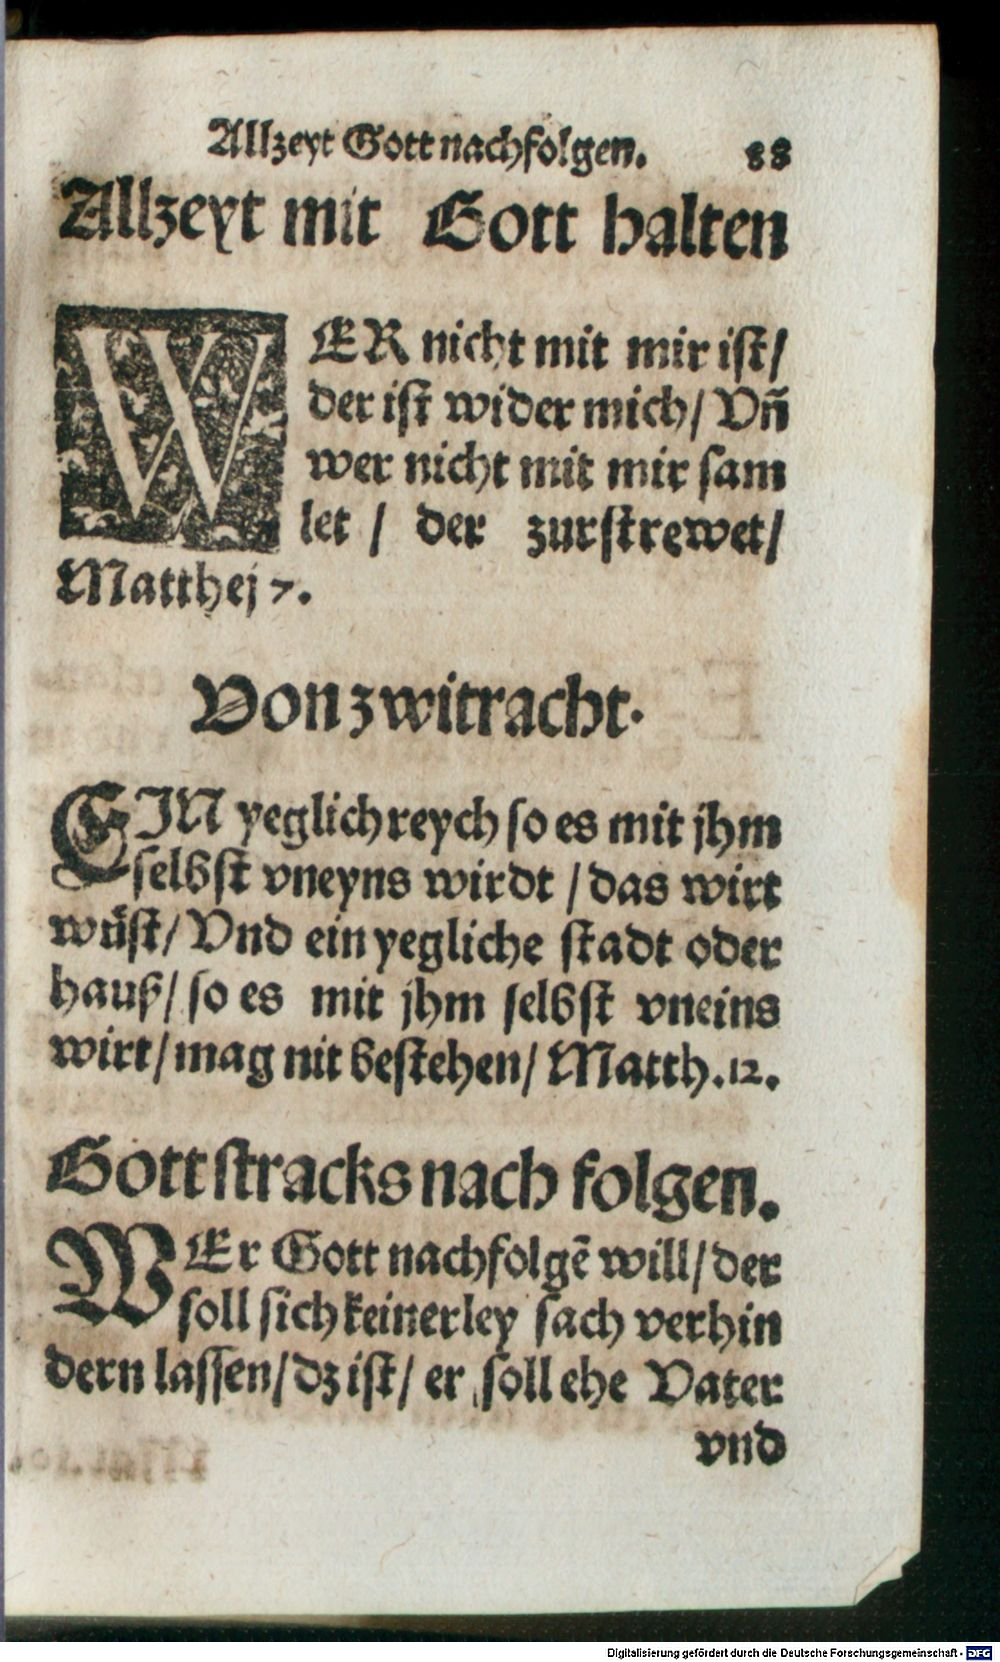 Allzeyt Gott nachfolgen. 88
Allzeyt mit Gott halten
WER nicht mit mir ist/
der ist wider mich/ Vñ
wer nicht mit mir sam
let / der zurstrewet/
Matthej 7.
Von zwitracht.
EIN yeglich reych so es mit jhm
selbst vneyns wirdt / das wirt
wuͤst/ Vnd ein yegliche stadt oder
hauß/ so es mit jhm selbst vneins
wirt/ mag nit bestehen/ Matth.12.
Gott stracks nach folgen.
WEr Gott nachfolgẽ will/ der
soll sich keinerley sach verhin
dern lassen/ dz ist/ er soll ehe Vater
vnd
Digitalisierung gefördert durch die Deutsche Forschungsgemeinschaft - DFG